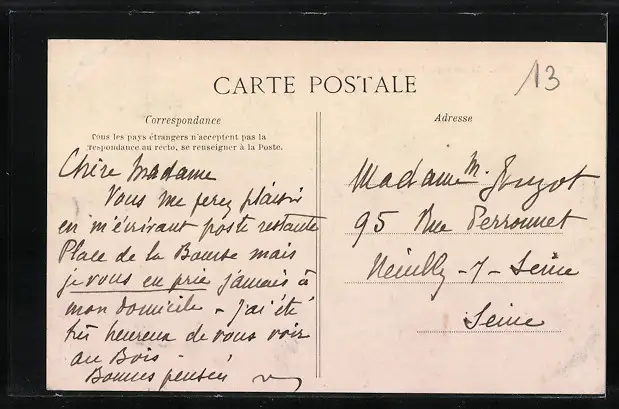 CARTE POSTALE
13
Correspondance
Tous les pays étrangers n'acceptent pas la
respondance au recto, se renseigner à la Poste.
Chère Madame
Vous me ferez plaisir
en m'écrivant poste restante
Place de la Bourse mais
je vous en prie jamais à
mon domicile - J'ai été
très heureux de vous voir
au Bois -
Bonnes pensées
Adresse
Madame M.
95 Rue Perronnet
Neuilly - s - Seine
Seine